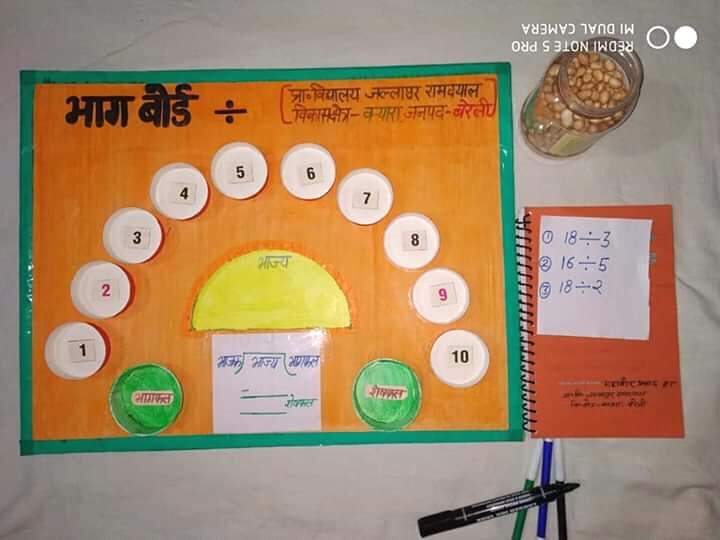 REDMI NOTE 5 PRO
MI DUAL CAMERA
भाग बोर्ड ÷
प्रा॰ विद्यालय जल्लापुर रामदयाल
विकासक्षेत्र- क्यारा, जनपद- बरेली
1
2
3
4
5
6
7
8
9
10
भाज्य
भाजक भाज्य भागफल
शेषफल
भागफल
शेषफल
① 18÷3
② 16÷5
③ 18÷2